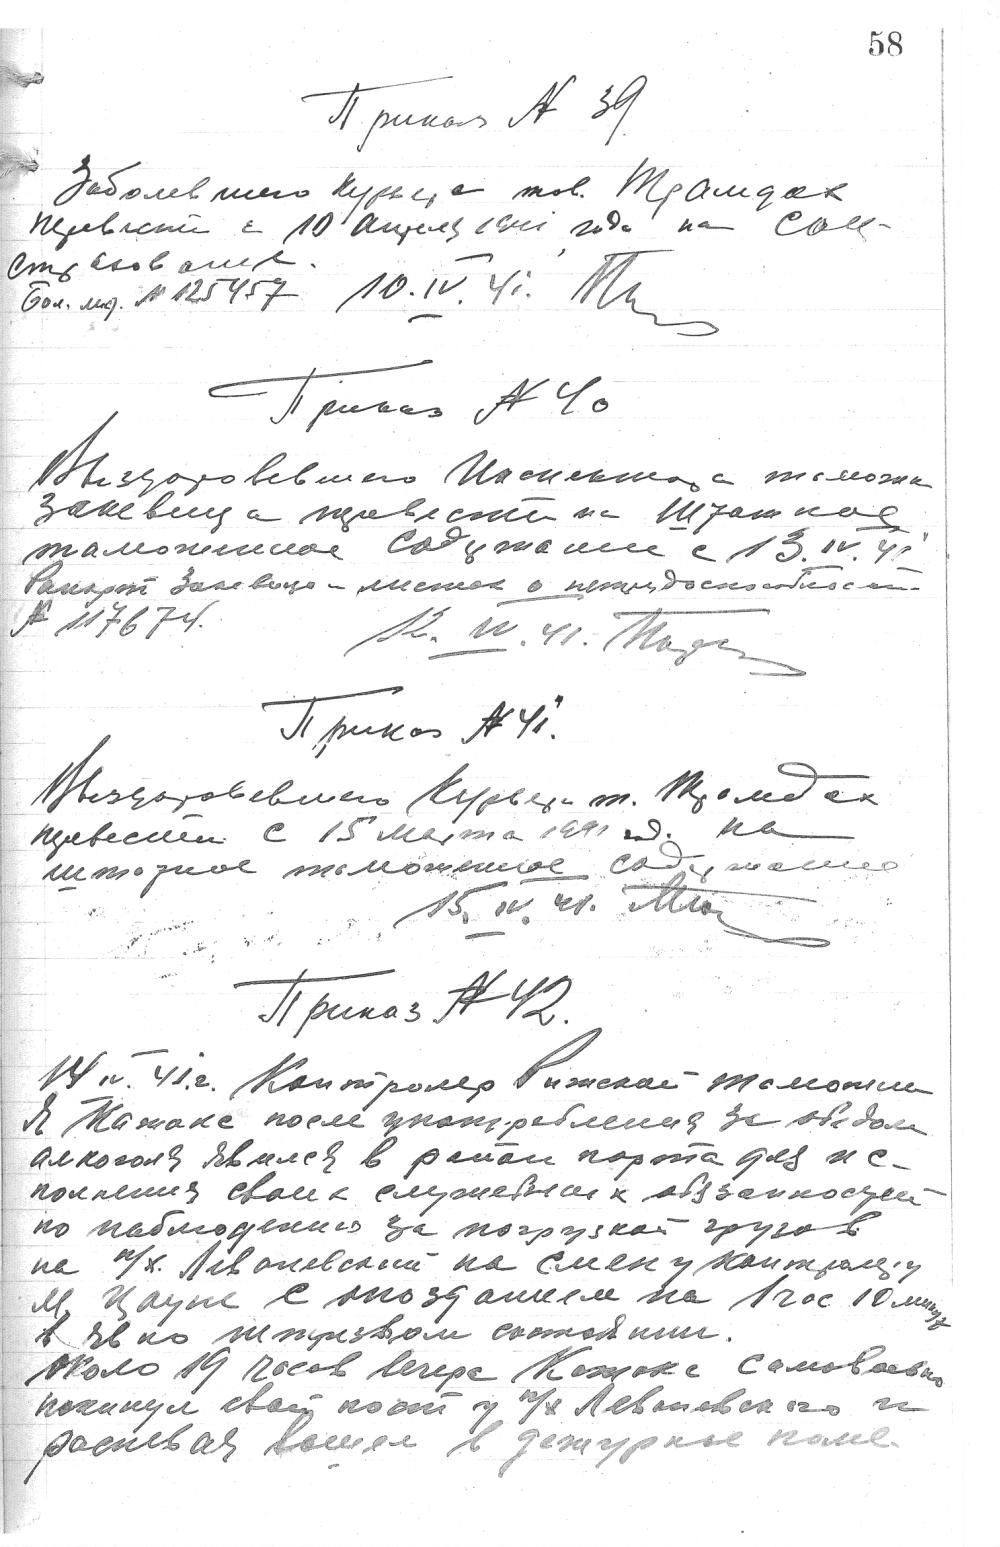 58
Приказ № 39
Заболевшего курьера тов. Трамдак
перевести с 10 апреля 1941 года на соц-
страхование.
Бол. лист. № 125457 10.IV.41.
Приказ № 40
Выздоровевшего Инспектора таможни
Закевица перевести на штатное
таможенное содержание с 13.IV.41
Рапорт Закевица – листок о нетрудоспособности
№ 117674. 12.IV.41.
Приказ № 41.
Выздоровевшего Курьера т. Трамдак
перевести с 15 марта 1941 год. на
штатное таможенное содержание
15.IV.41.
Приказ № 42.
14 IV. 41.г. Контролер Рижской таможни
Я Кажоке после употребления за обедом
алкоголя явился в район порта для ис-
полнения своих служебных обязанностей
по наблюдению за погрузкой грузов
на п/х. Леваневский на смену контролеру
М. Цауне с опозданием на 1 час 10 минут
в явно нетрезвом состоянии.
Около 19 часов вечера Кажоке самовольно
покинул свой пост у п/х Леваневского и
распевая вошел в дежурное поме-